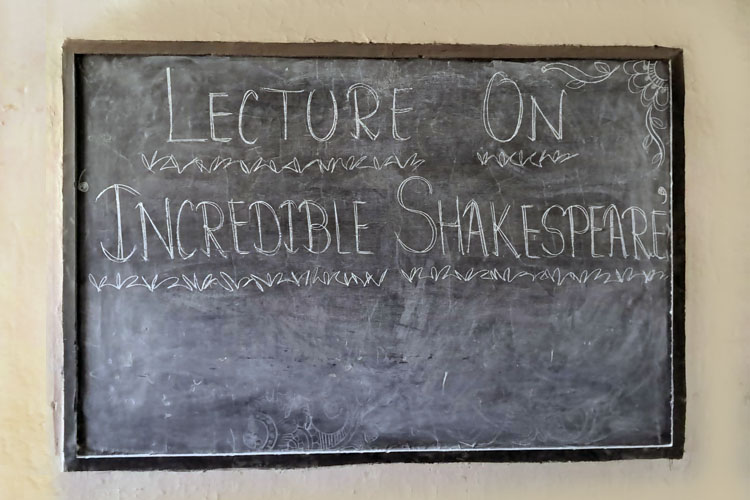 LECTURE ON
'INCREDIBLE SHAKESPEARE'